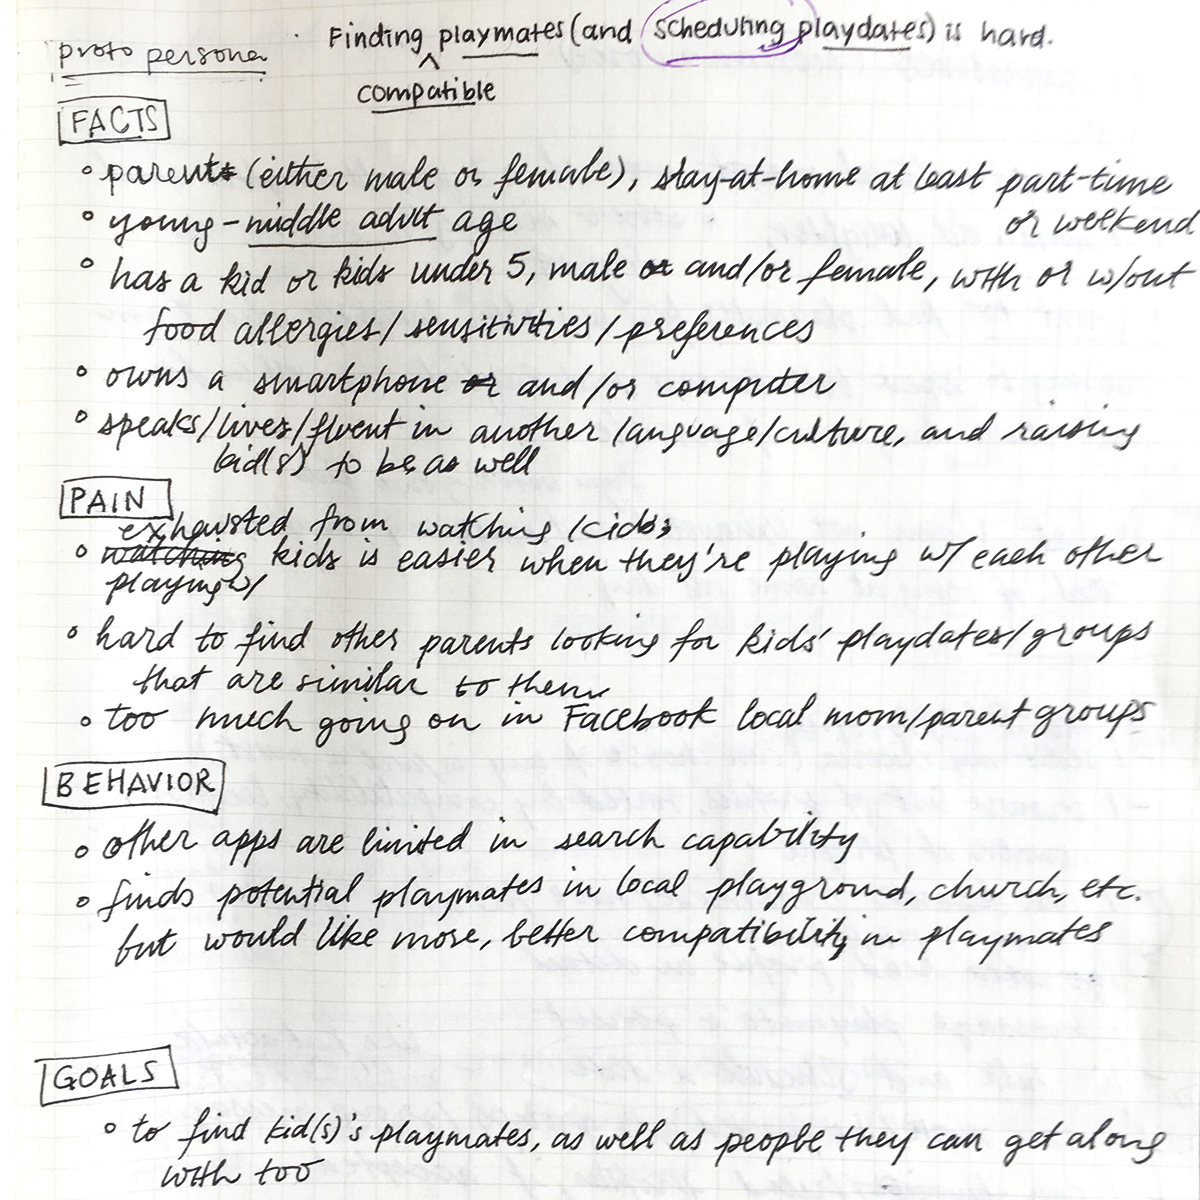 proto persona
Finding playmates (and scheduling playdates) is hard.
compatible
FACTS
• parent (either male or female), stay-at-home at least part-time
or weekend
• young-middle adult age
• has a kid or kids under 5, male and/or female, with or w/out
food allergies/sensitivities/preferences
• owns a smartphone and/or computer
• speaks/lives/fluent in another language/culture, and raising
kid(s) to be as well
PAIN
exhausted from watching kids
• watching kids is easier when they're playing w/ each other
playing w/
• hard to find other parents looking for kids' playdates/groups
that are similar to them
• too much going on in Facebook local mom/parent groups
BEHAVIOR
• other apps are limited in search capability
• finds potential playmates in local playground, church, etc.
but would like more, better compatibility in playmates
GOALS
• to find kid(s)'s playmates, as well as people they can get along
with too